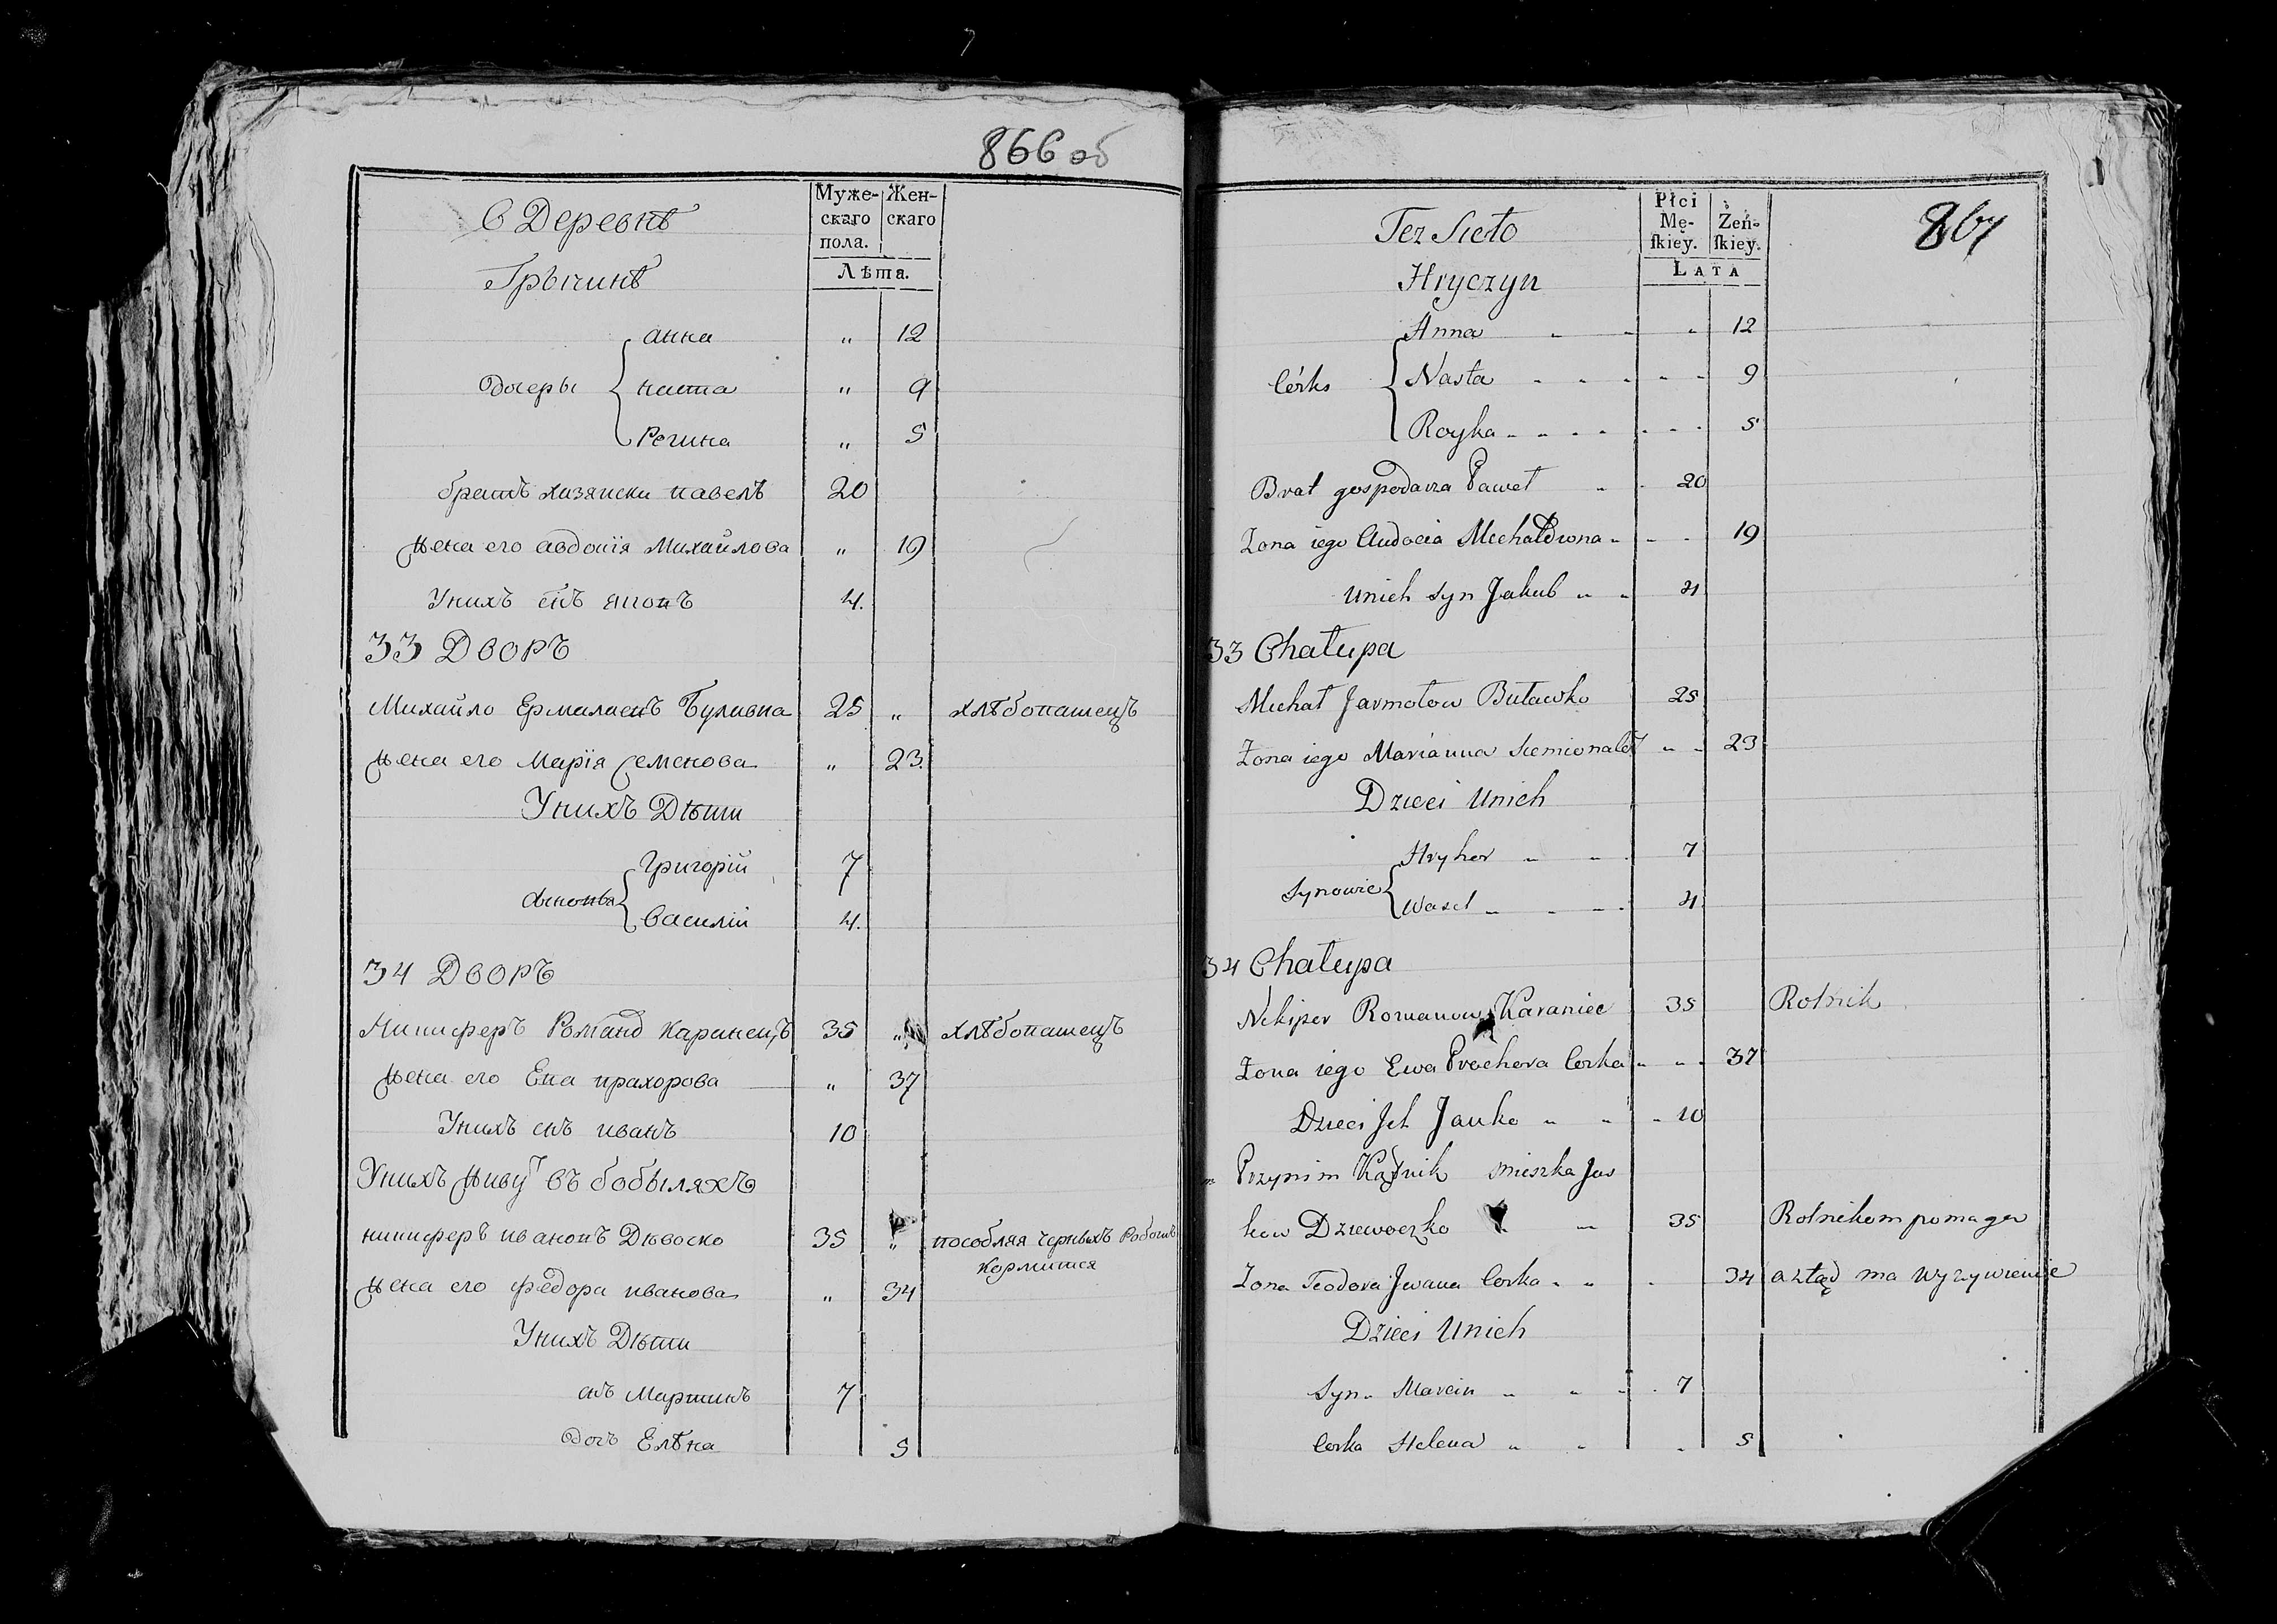 866 об
В Деревнѣ
Грычинѣ
Муже-
скаго
пола.
Жен-
скаго
Лѣта.
дочеры { анна " 12
наста " 9
Регина " 5
братъ хазяиски павелъ 20
жена его авдокія Михайлова " 19
Унихъ снъ якопъ 4.
33 Дворъ
Михайло Ермалаевъ Булавка 25 " хлѣбопашецъ
жена его Марія Семенова " 23.
Унихъ Дѣти
сыновья { Григорій 7
Василій 4.
34 Дворъ
Никиферъ Романо Каранецъ 35 " хлѣбопашецъ
жена его Ева прахорова " 37
Унихъ снъ иванъ 10
Унихъ живу͏т въ бобыляхъ
никиферъ ивановъ Дѣвоско 35 " пособляя черныхъ Работъ
Кормится
жена его федора иванова " 34
Унихъ Дѣти
снъ Мартинъ 7
дочь Елѣна 5
867
Tez Sieło
Hryczyn
Płci
Mę-
ſkiey.
Żeń-
ſkiey.
LATA
Córks { Anna 12
Nasta 9
Royka 5
Brat gospodarza Paweł 20
Zona iego Audocia Mechałowna 19
Unich syn Jakub 4
33 Chałupa
Michał Jarmołow Buławko 25
Zona iego Marianna Siemionał 23
Dzieci Unich
Synowie { Hryher 7
Wasel 4
34 Chałupa
Nikiper Romanow Karaniec 35 Rolnik
Zona iego Ewa Prochora Corka 37
Dzieci Jch Janko 10
Przynim Kątnik mieszka Jws
kow Dziewoczko 35 Rolnikom pomaga
Zona Teodora Jwana Corka 34 a ztąd ma wyzywienie
Dzieci Unich
Syn Marcin 7
Corka Helena 5